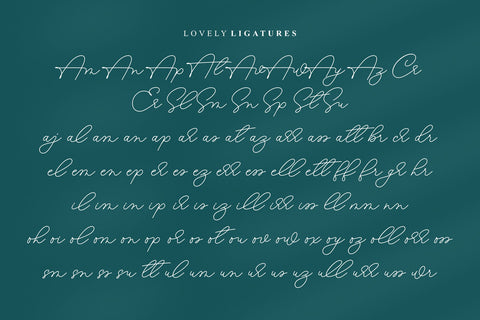 LOVELY LIGATURES
Am An Ap At Av Aw Ay Az Ce
Er Sl Sm Sn Sp St Su
aj al am an ap ar as at az arr ass att br cr dr
el em en ep er es ez err ess ell ett ff fr gr hr
il im in ip ir is iz ill irr iss ll mm nn
ok oi ol om on op or os ot ou ov ow ox oy oz oll orr oss
sm sn ss su tt ul um un ur us uz ull urr uss wr